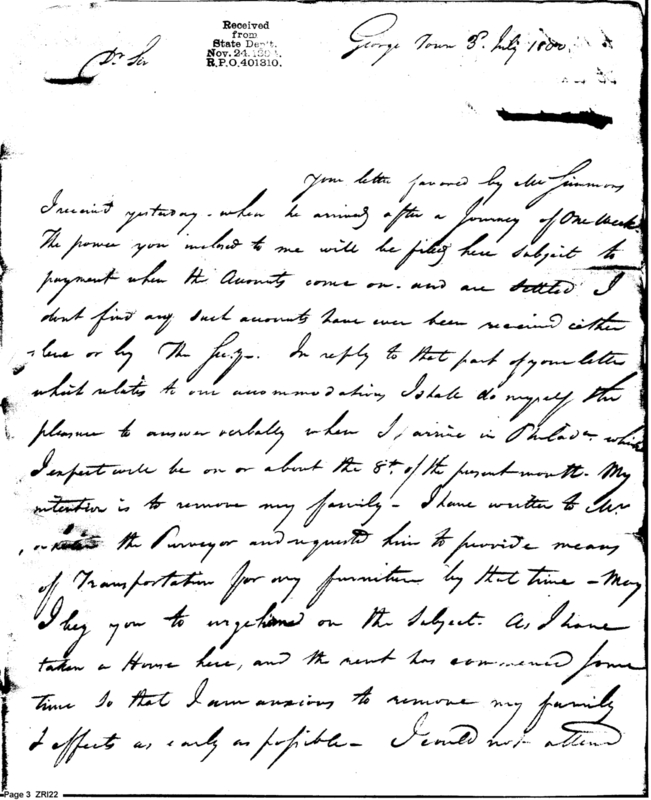 Received
from
State Dep't.
Nov. 24. 1894.
R.P.O. 401310.
George Town 3d. July 1800
Dr Sir
Your letter favored by Mr Simmons
I receivd yesterday - when he arrived after a Journey of One Week
The power you inclosed to me will be filed here subject to
payment when the Accounts come on - and are settled I
dont find any such accounts have ever been received either
here or by The Secy -. In reply to that part of your letter
which relates to our accommodation, I shall do myself the
pleasure to answer verbally when I arrive in Philada. which
I expect will be on or about the 8th. of the present month - My
intention is to remove my family - I have written to Mr
the Purveyor and requested him to provide means
of Transportation for my furniture by that time - May
I beg you to urge on the subject. As I have
taken a House here, and the rent has commenced some
time so that I am anxious to remove my family
& effects as early as possible - I could not attend
Page 3 ZRI22